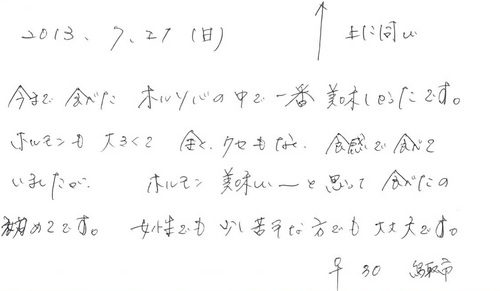 2013. 7. 21 (日) ↑ 上に同じ
今まで食べたホルソバの中で一番美味しかったです。
ホルモンも大きくて全く、クセもなく、食感で食べて
いましたが、ホルモン美味しい〜と思って食べたの
初めてです。女性でも少し苦手な方でも大丈夫です。
♀ 30 鳥取市